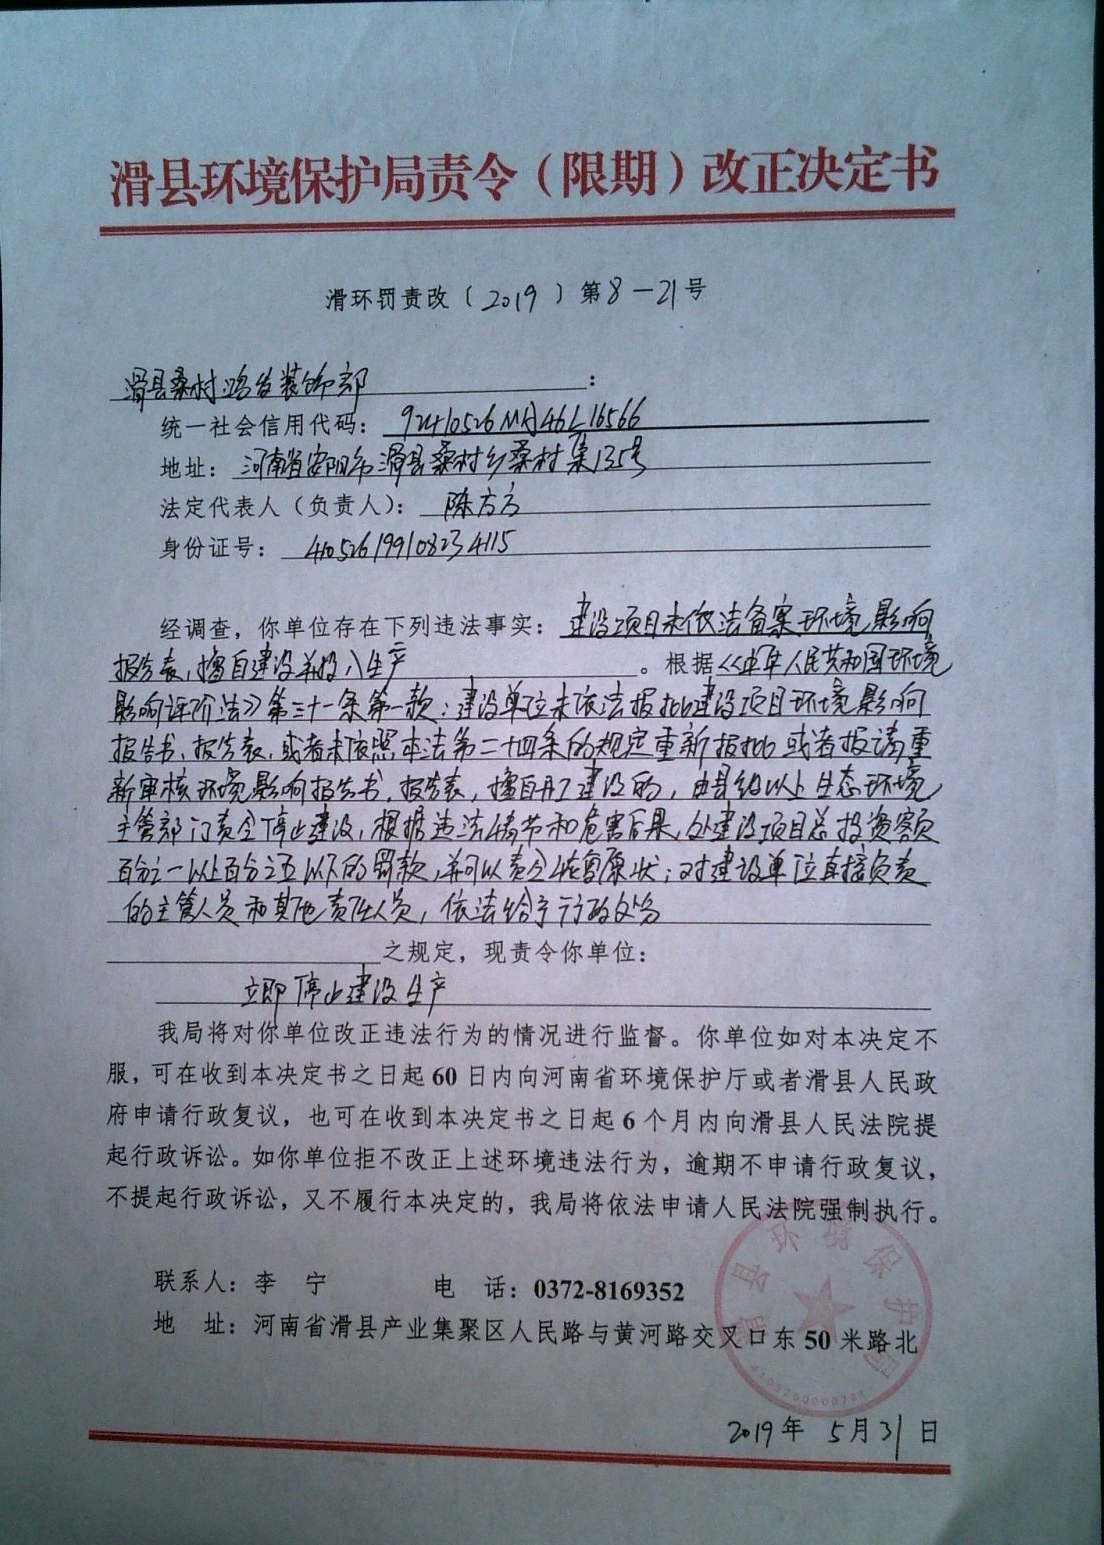 滑县环境保护局责令（限期）改正决定书
滑环罚责改（2019）第8-21号
滑县桑村鸿发装饰部：
统一社会信用代码：92410526MA46L16566
地址：河南省安阳市滑县桑村乡桑村集135号
法定代表人（负责人）：陈方方
身份证号：410526199108234115
经调查，你单位存在下列违法事实：建设项目未依法备案环境影响
报告表，擅自建设并投入生产。根据《中华人民共和国环境
影响评价法》第三十一条第一款：建设单位未依法报批建设项目环境影响
报告书、报告表，或者未依照本法第二十四条的规定重新报批或者报请重
新审核环境影响报告书、报告表，擅自开工建设的，由县级以上生态环境
主管部门责令停止建设，根据违法情节和危害后果，处建设项目总投资额
百分之一以上百分之五以下的罚款，并可以责令恢复原状；对建设单位直接负责
的主管人员和其他责任人员，依法给予行政处分
之规定，现责令你单位：
立即停止建设生产
我局将对你单位改正违法行为的情况进行监督。你单位如对本决定不
服，可在收到本决定书之日起60日内向河南省环境保护厅或者滑县人民政
府申请行政复议，也可在收到本决定书之日起6个月内向滑县人民法院提
起行政诉讼。如你单位拒不改正上述环境违法行为，逾期不申请行政复议，
不提起行政诉讼，又不履行本决定的，我局将依法申请人民法院强制执行。
联系人：李 宁 电 话：0372-8169352
地 址：河南省滑县产业集聚区人民路与黄河路交叉口东50米路北
滑县环境保护局
2019年5月31日